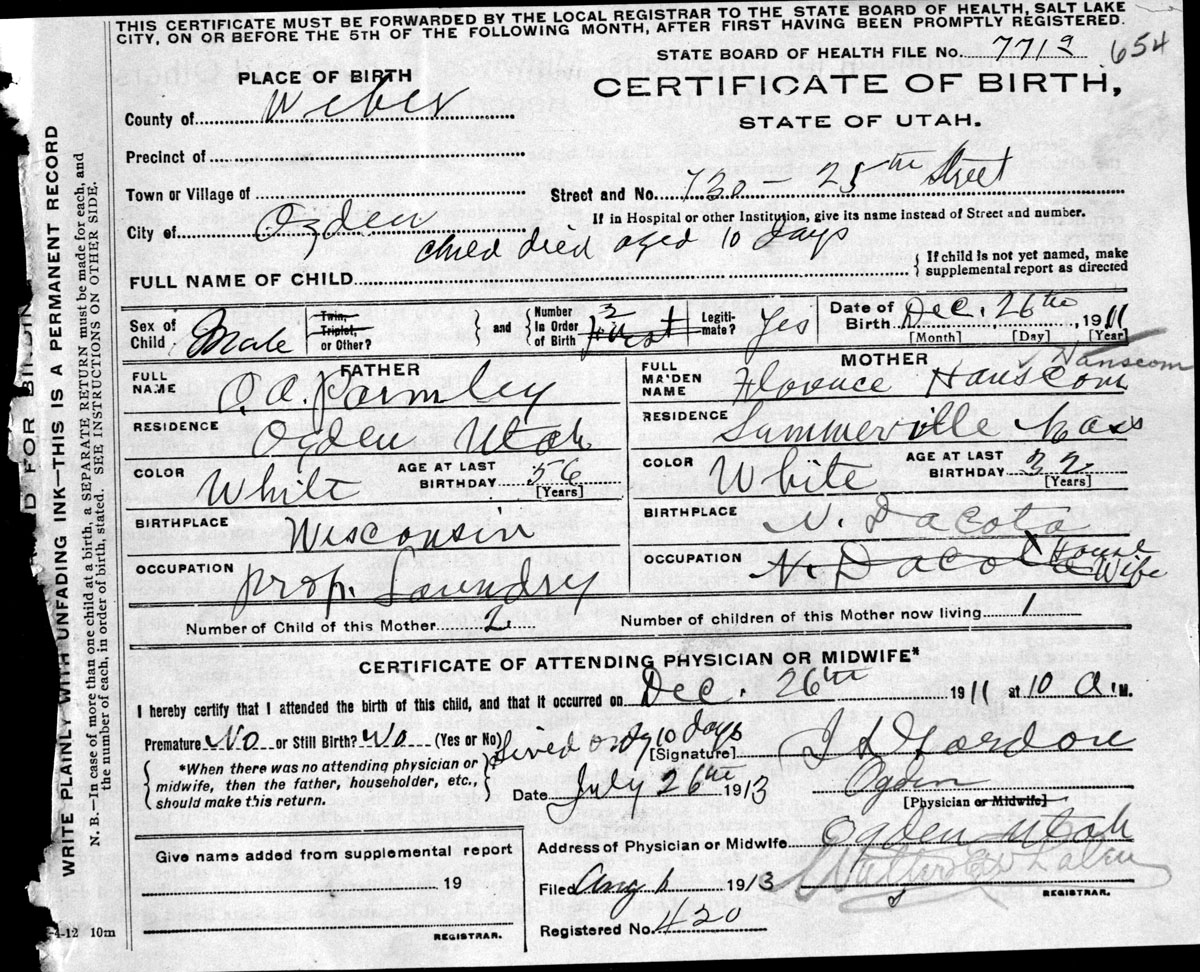 THIS CERTIFICATE MUST BE FORWARDED BY THE LOCAL REGISTRAR TO THE STATE BOARD OF HEALTH, SALT LAKE
CITY, ON OR BEFORE THE 5TH OF THE FOLLOWING MONTH, AFTER FIRST HAVING BEEN PROMPTLY REGISTERED.
STATE BOARD OF HEALTH FILE NO. 7719 654
PLACE OF BIRTH
CERTIFICATE OF BIRTH,
STATE OF UTAH.
County of Weber
Precinct of
Town or Village of
Street and No. 730 - 25th Street
If in Hospital or other Institution, give its name instead of Street and number.
City of Ogden
child died aged 10 days
FULL NAME OF CHILD
If child is not yet named, make
supplemental report as directed
Sex of Child Male
Twin,
Triplet,
or Other?
and
Number
In Order
of Birth
2
first
Legiti-
mate? Yes
Date of
Birth Dec. 26th, 1911
[Month] [Day] [Year]
FATHER
FULL NAME O.A. Parmley
RESIDENCE Ogden Utah
COLOR White
AGE AT LAST
BIRTHDAY 56
[Years]
BIRTHPLACE Wisconsin
OCCUPATION Prop. Laundry
MOTHER
Hanscom
FULL
MAIDEN
NAME Florence Hanscom
RESIDENCE Summerville Mass
COLOR White
AGE AT LAST
BIRTHDAY 32
[Years]
BIRTHPLACE N. Dacota
OCCUPATION N. Dacota House Wife
Number of Child of this Mother 2
Number of children of this Mother now living 1
CERTIFICATE OF ATTENDING PHYSICIAN OR MIDWIFE*
I hereby certify that I attended the birth of this child, and that it occurred on Dec. 26th 1911 at 10 A.M.
Premature No or Still Birth? No (Yes or No) Lived only 10 days
[Signature]
*When there was no attending physician or
midwife, then the father, householder, etc.,
should make this return.
Date July 26th 1913
Ogden
[Physician or Midwife]
Address of Physician or Midwife Ogden Utah
Give name added from supplemental report
19
REGISTRAR.
Filed Aug 6 1913
REGISTRAR.
Registered No. 420
4-12 10m
D FOR BINDIN
WRITE PLAINLY WITH UNFADING INK—THIS IS A PERMANENT RECORD
N. B.—In case of more than one child at a birth, a SEPARATE RETURN must be made for each, and
the number of each, in order of birth, stated. SEE INSTRUCTIONS ON OTHER SIDE.